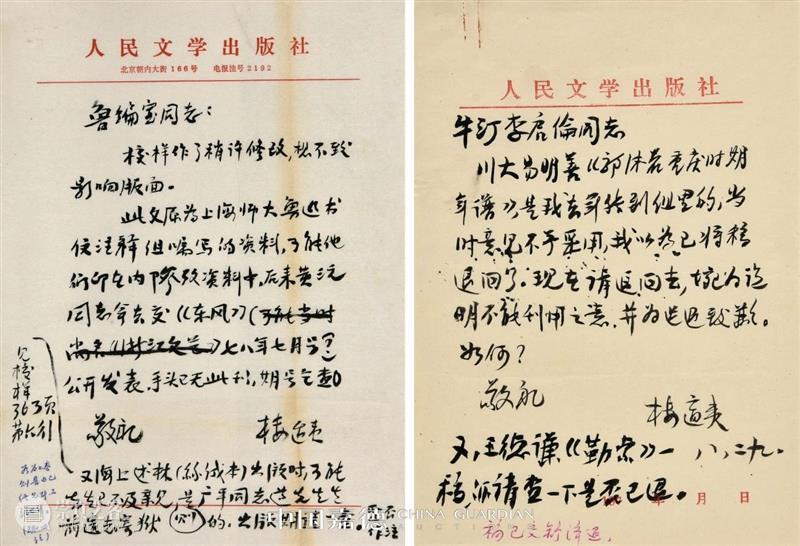 人民文学出版社
北京朝内大街166号 电报挂号2192
鲁编室同志：
校样作了稍许修改，想不致
影响版面。
此文原为上海师大鲁迅书
信注释组嘱写的资料，可能他
们印在内部参考资料中，后来黄沅
同志拿去交《东风》（可能当时
尚名《》七八年七月号
公开发表，手头已无此刊，期号乞查
见校样
363页
第六行
敬礼
楼适夷
又海上述林（绒本）出版时，可能
先生已不及亲见，是广平同志遵先生
的，出版期请查一查。
人民文学出版社
牛汀李启伦同志
川大易明善《郭沫若重庆时期
年谱》，是我去年转到组里的，当
时意见不予采用，我以为已将稿
退回了。现在请退回去，境为说
明不能利用之意，并为迟退致歉。
如何？
敬礼
楼适夷
八，二九。
又，王德谦《勤索》一
稿，亦请查一下是否已退。
年 月 日
稿已交舒济退。
中国嘉德
CHINA GUARDIAN